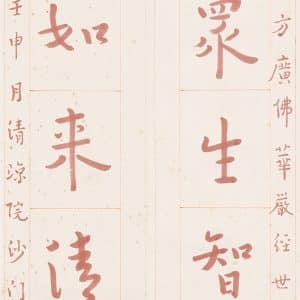 方廣佛華嚴經世
眾生智
如来清
壬申月清涼院沙门